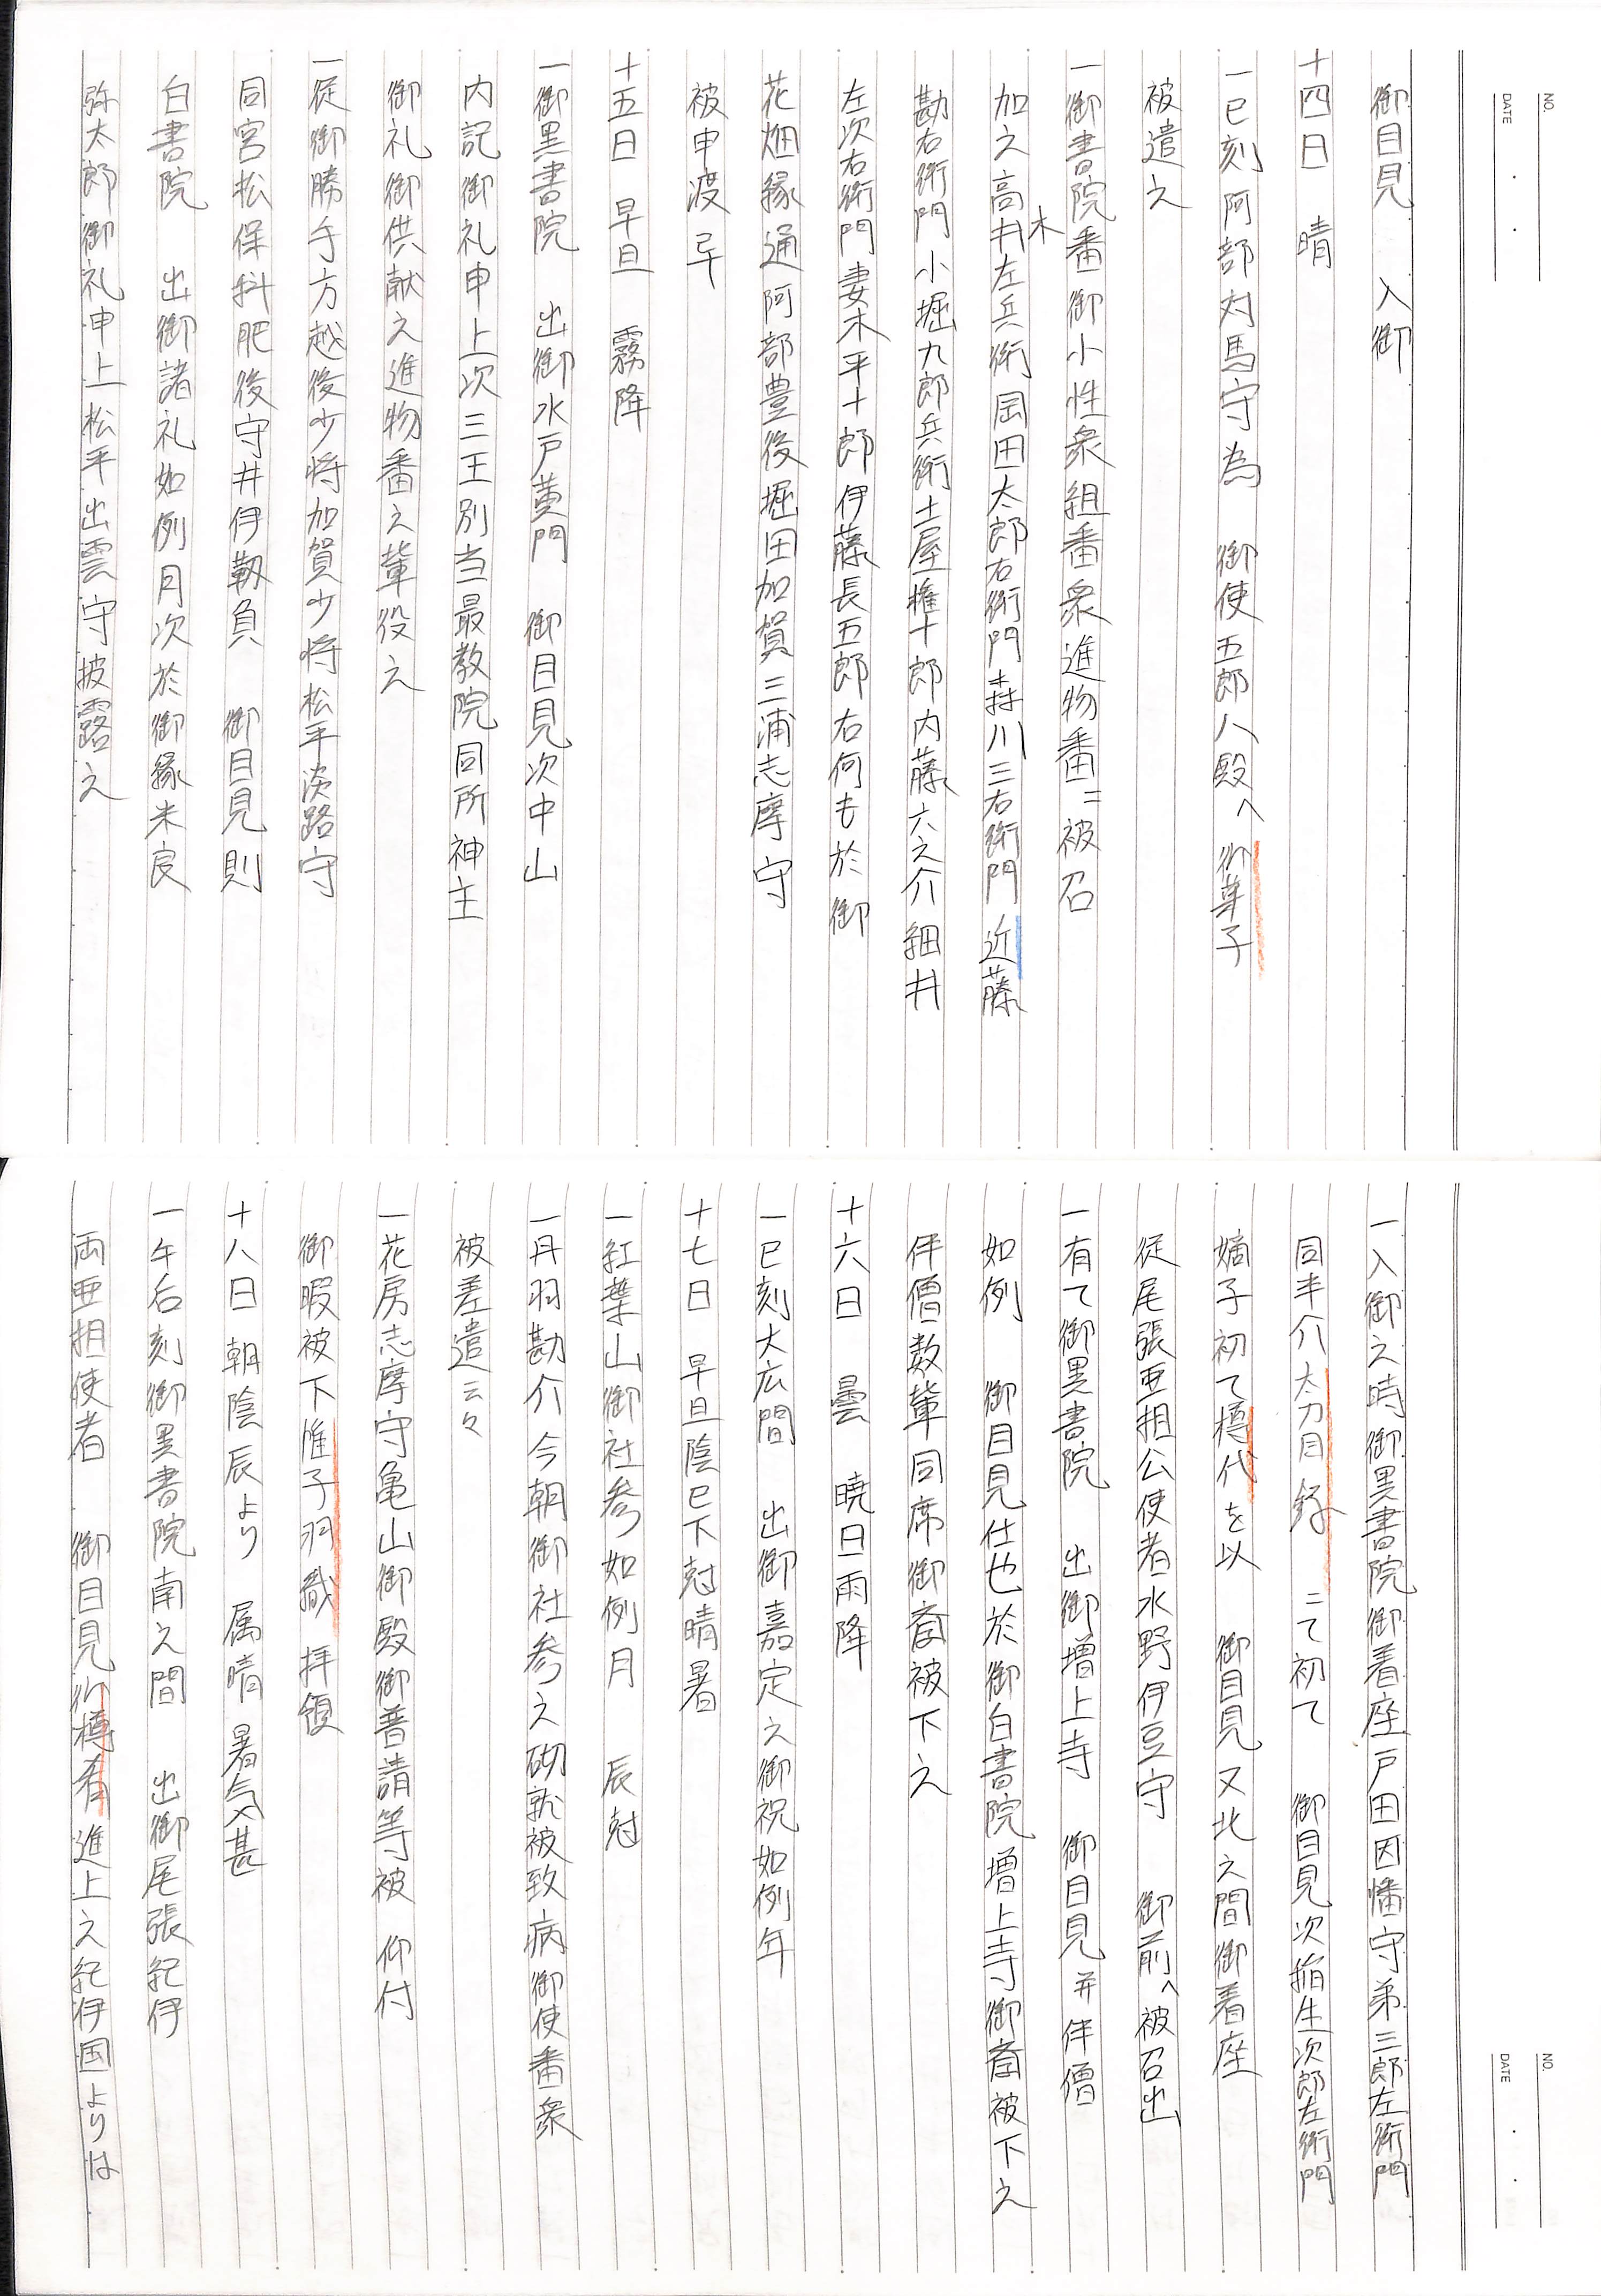 NO.
DATE
御目見　入御
十四日　晴
一巳刻阿部対馬守為　御使五郎八殿へ御菓子
被遣之
一御書院番御小性衆組番衆進物番ニ被召
加之高井左兵衛岡田太郎右衛門森川三右衛門近藤
木
勘右衛門小堀九郎兵衛土屋権十郎内藤六之介細井
左次右衛門妻木平十郎伊藤長五郎右何も於御
花畑縁通阿部豊後堀田加賀三浦志摩守
被申渡早
十五日　早旦　霧降
一御黒書院　出御水戸黄門　御目見次中山
内記御礼申上次三王別当最教院同所神主
御礼御供献之進物番之輩役之
一従御勝手方越後少将加賀少将松平淡路守
同宮松保科肥後守井伊靱負　御目見則
白書院　出御諸礼如例月次於御縁米良
弥太郎御礼申上松平出雲守披露之
NO.
DATE
一入御之時御黒書院御着座戸田因幡守弟三郎左衛門
同半介太刀目録ニて初て　御目見次稲生次郎左衛門
嫡子初て樽代を以　御目見又北之間御着座
従尾張亜相公使者水野伊豆守　御前へ被召出
一有て御黒書院　出御増上寺　御目見并伴僧
如例　御目見仕也於御白書院増上寺御斎被下之
伴僧数輩同席御斎被下之
十六日　曇　暁日雨降
一巳刻大広間　出御嘉定之御祝如例年
十七日　早旦陰巳下尅晴暑
一紅葉山御社参如例月　辰尅
一丹羽勘介今朝御社参之砌就被致病御使番衆
被差遣云々
一花房志摩守亀山御殿御普請等被　仰付
御暇被下帷子羽織拝領
十八日　朝陰辰より　属晴　暑気甚
一午后刻御黒書院南之間　出御尾張紀伊
両亜相使者　御目見御樽肴進上之紀伊国よりは